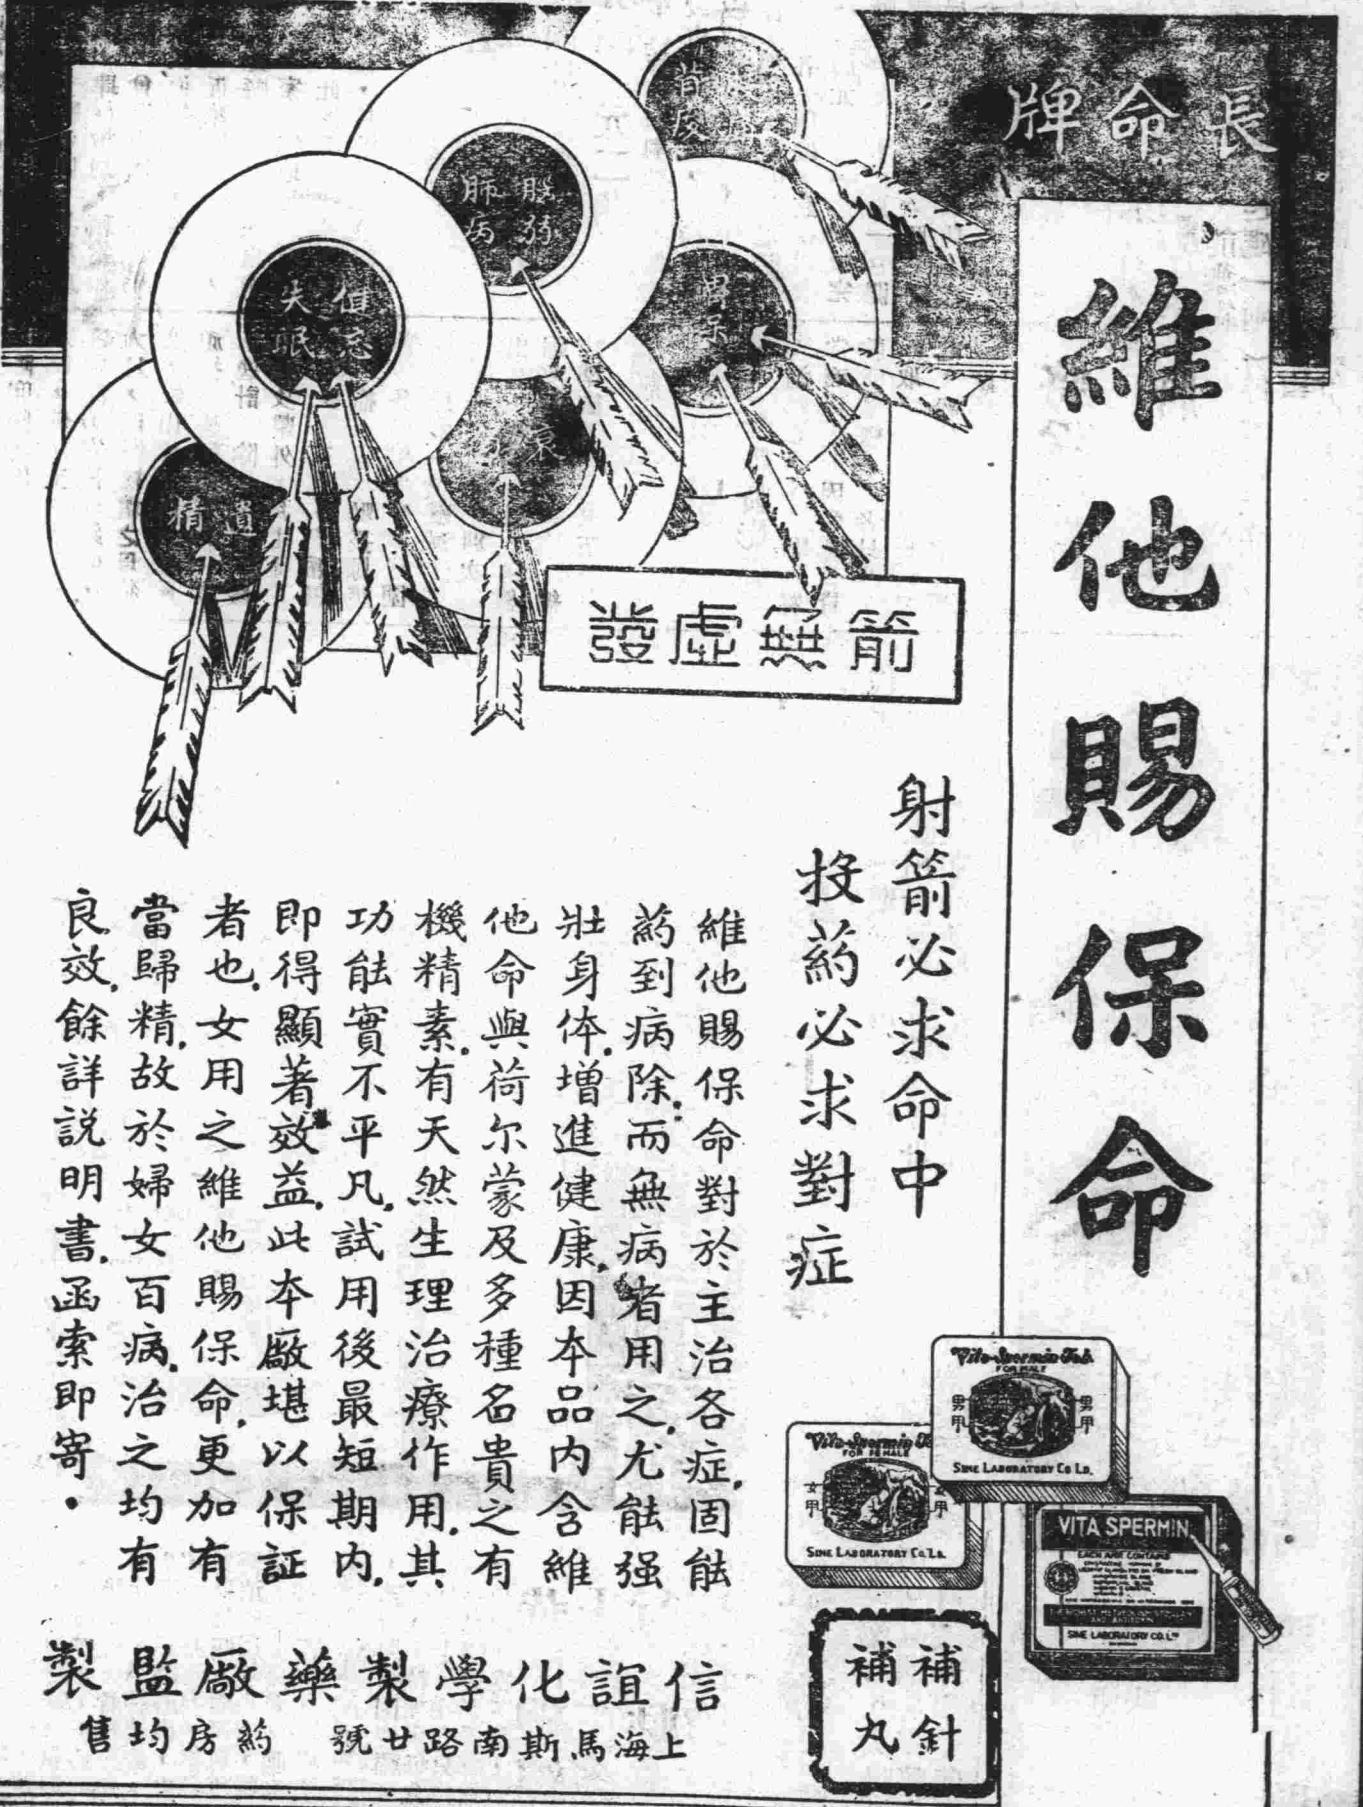 長命牌
維他賜保命
肺病
失眠
健忘
遺精
箭無虛發
射箭必求命中
投葯必求對症
維他賜保命對於主治各症,固能
葯到病除;而無病者用之,尤能强
壯身体,增進健康,因本品内含維
他命與荷尔蒙及多種名貴之有
機精素,有天然生理治療作用,其
功能實不平凡,試用後最短期内,
即得顯著效益,此本廠堪以保証
者也,女用之維他賜保命,更加有
當歸精,故於婦女百病,治之均有
良效,餘詳説明書,函索即寄。
Vita-Spermin Tab.
FOR MALE
男甲
男甲
SINE LABORATORY CO LD.
Vita-Spermin
FOR FEMALE
女甲
SINE LABORATORY CO. LD.
VITA SPERMIN
EACH AMP. CONTAINS
SINE LABORATORY CO. LTD
補針
補丸
信誼化學製藥廠監製
上海馬斯南路廿號 葯房均售